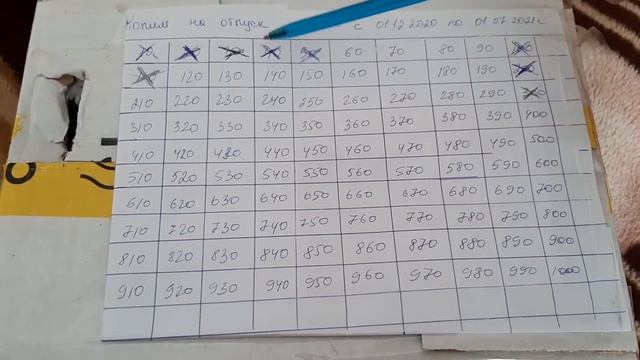 Копим на отпуск с 01.12.2020 по 01.07.2021 г
60 70 80 90
120 130 140 150 160 170 180 190
210 220 230 240 250 260 270 280 290
310 320 330 340 350 360 370 380 390 400
410 420 430 440 450 460 470 480 490 500
510 520 530 540 550 560 570 580 590 600
610 620 630 640 650 660 670 680 690 700
710 720 730 740 750 760 770 780 790 800
810 820 830 840 850 860 870 880 890 900
910 920 930 940 950 960 970 980 990 1000